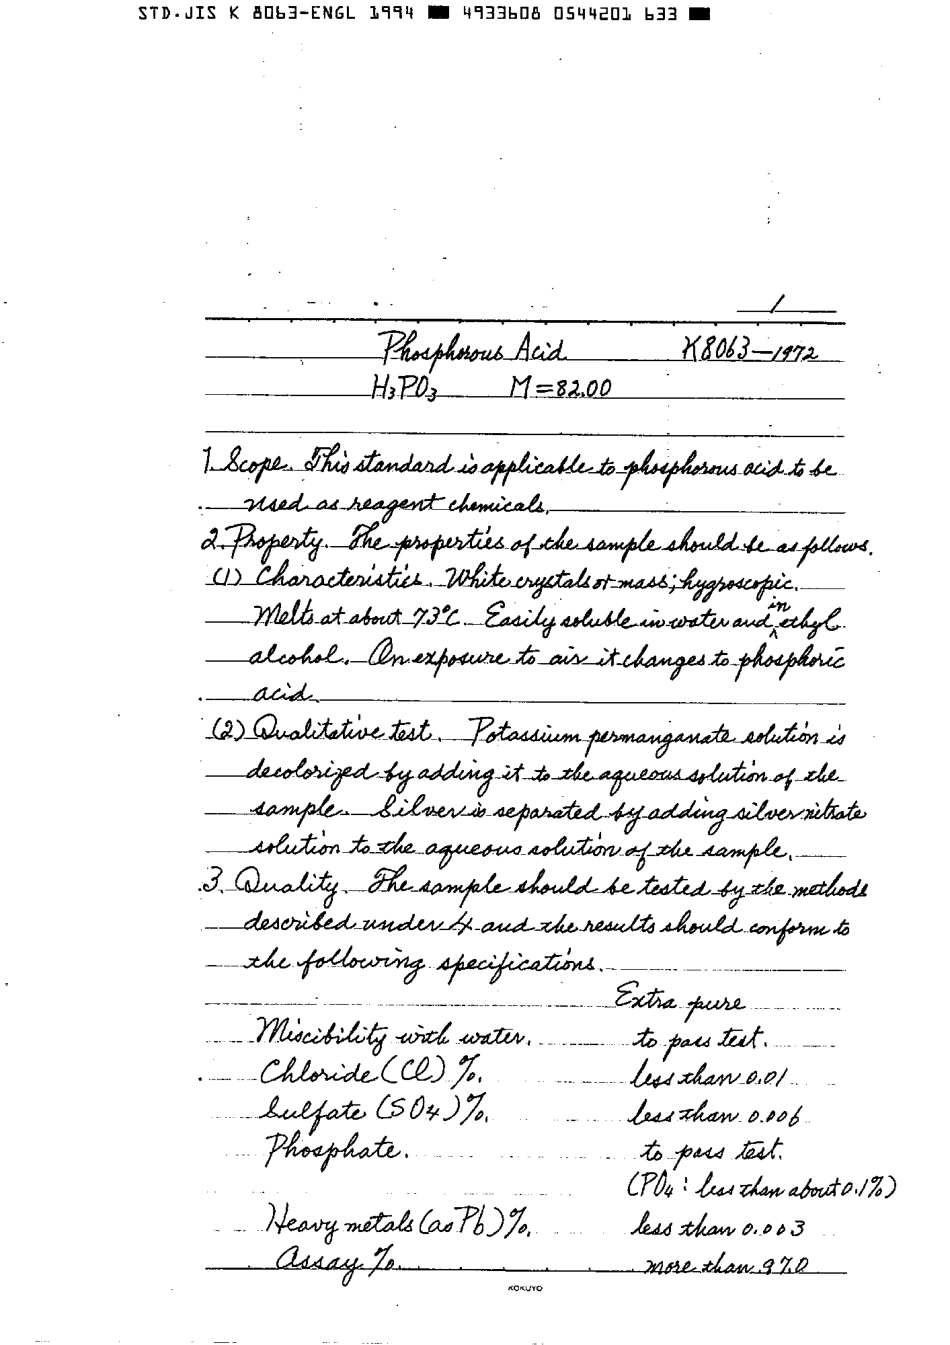 STD.JIS K 8063-ENGL 1994 ■ 4933608 0544201 633 ■
1
Phosphorous Acid K8063-1972
H₃PO₃ M=82.00
1. Scope. This standard is applicable to phosphorous acid to be
used as reagent chemicals.
2. Property. The properties of the sample should be as follows.
(1) Characteristics. White crystals or mass; hygroscopic.
Melts at about 73°C. Easily soluble in water and in ethyl
alcohol. On exposure to air it changes to phosphoric
acid.
(2) Qualitative test. Potassium permanganate solution is
decolorized by adding it to the aqueous solution of the
sample. Silver is separated by adding silver nitrate
solution to the aqueous solution of the sample.
3. Quality. The sample should be tested by the methods
described under 4 and the results should conform to
the following specifications.
Extra pure
Miscibility with water. to pass test.
Chloride (Cl) %. less than 0.01
Sulfate (SO₄) %. less than 0.006
Phosphate. to pass test.
(PO₄: less than about 0.1%)
Heavy metals (as Pb) %. less than 0.003
Assay %. more than 97.0
KOKUYO